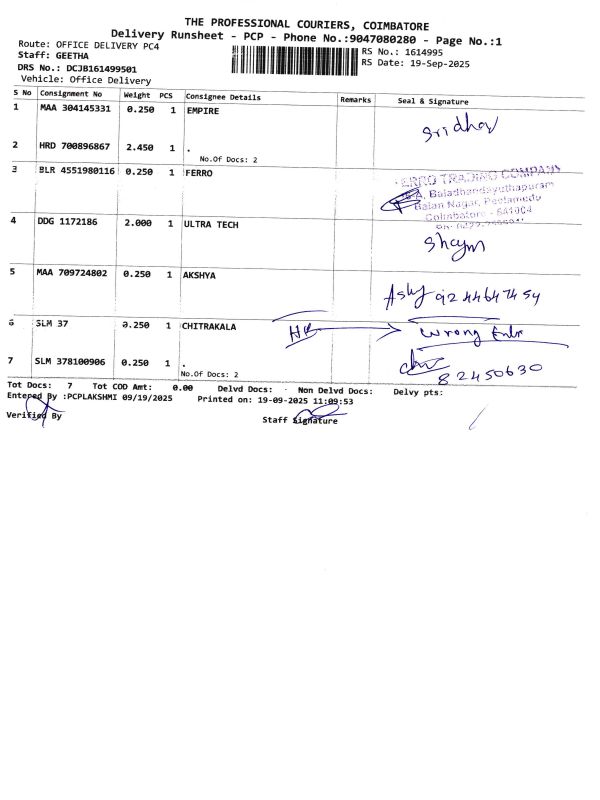 THE PROFESSIONAL COURIERS, COIMBATORE
Delivery Runsheet - PCP - Phone No.:9047080280 - Page No.:1
Route: OFFICE DELIVERY PC4
RS No.: 1614995
Staff: GEETHA
RS Date: 19-Sep-2025
DRS No.: DCJB161499501
Vehicle: Office Delivery
S No Consignment No Weight PCS Consignee Details Remarks Seal & Signature
1 MAA 304145331 0.250 1 EMPIRE
Sridhar
2 HRD 700896867 2.450 1 .
No.Of Docs: 2
3 BLR 4551980116 0.250 1 FERRO
FERRO TRADING COMPANY
Baladhandayuthapuram
Balan Nagar, Peelamedu
Coimbatore - 641004
4 DDG 1172186 2.000 1 ULTRA TECH
Shaym
5 MAA 709724802 0.250 1 AKSHYA
6 SLM 37 0.250 1 CHITRAKALA
Wrong
7 SLM 378100906 0.250 1 .
No.Of Docs: 2
82450630
Tot Docs: 7 Tot COD Amt: 0.00 Delvd Docs: Non Delvd Docs: Delvy pts:
Entered By :PCPLAKSHMI 09/19/2025 Printed on: 19-09-2025 11:09:53
Verified By
Staff Signature